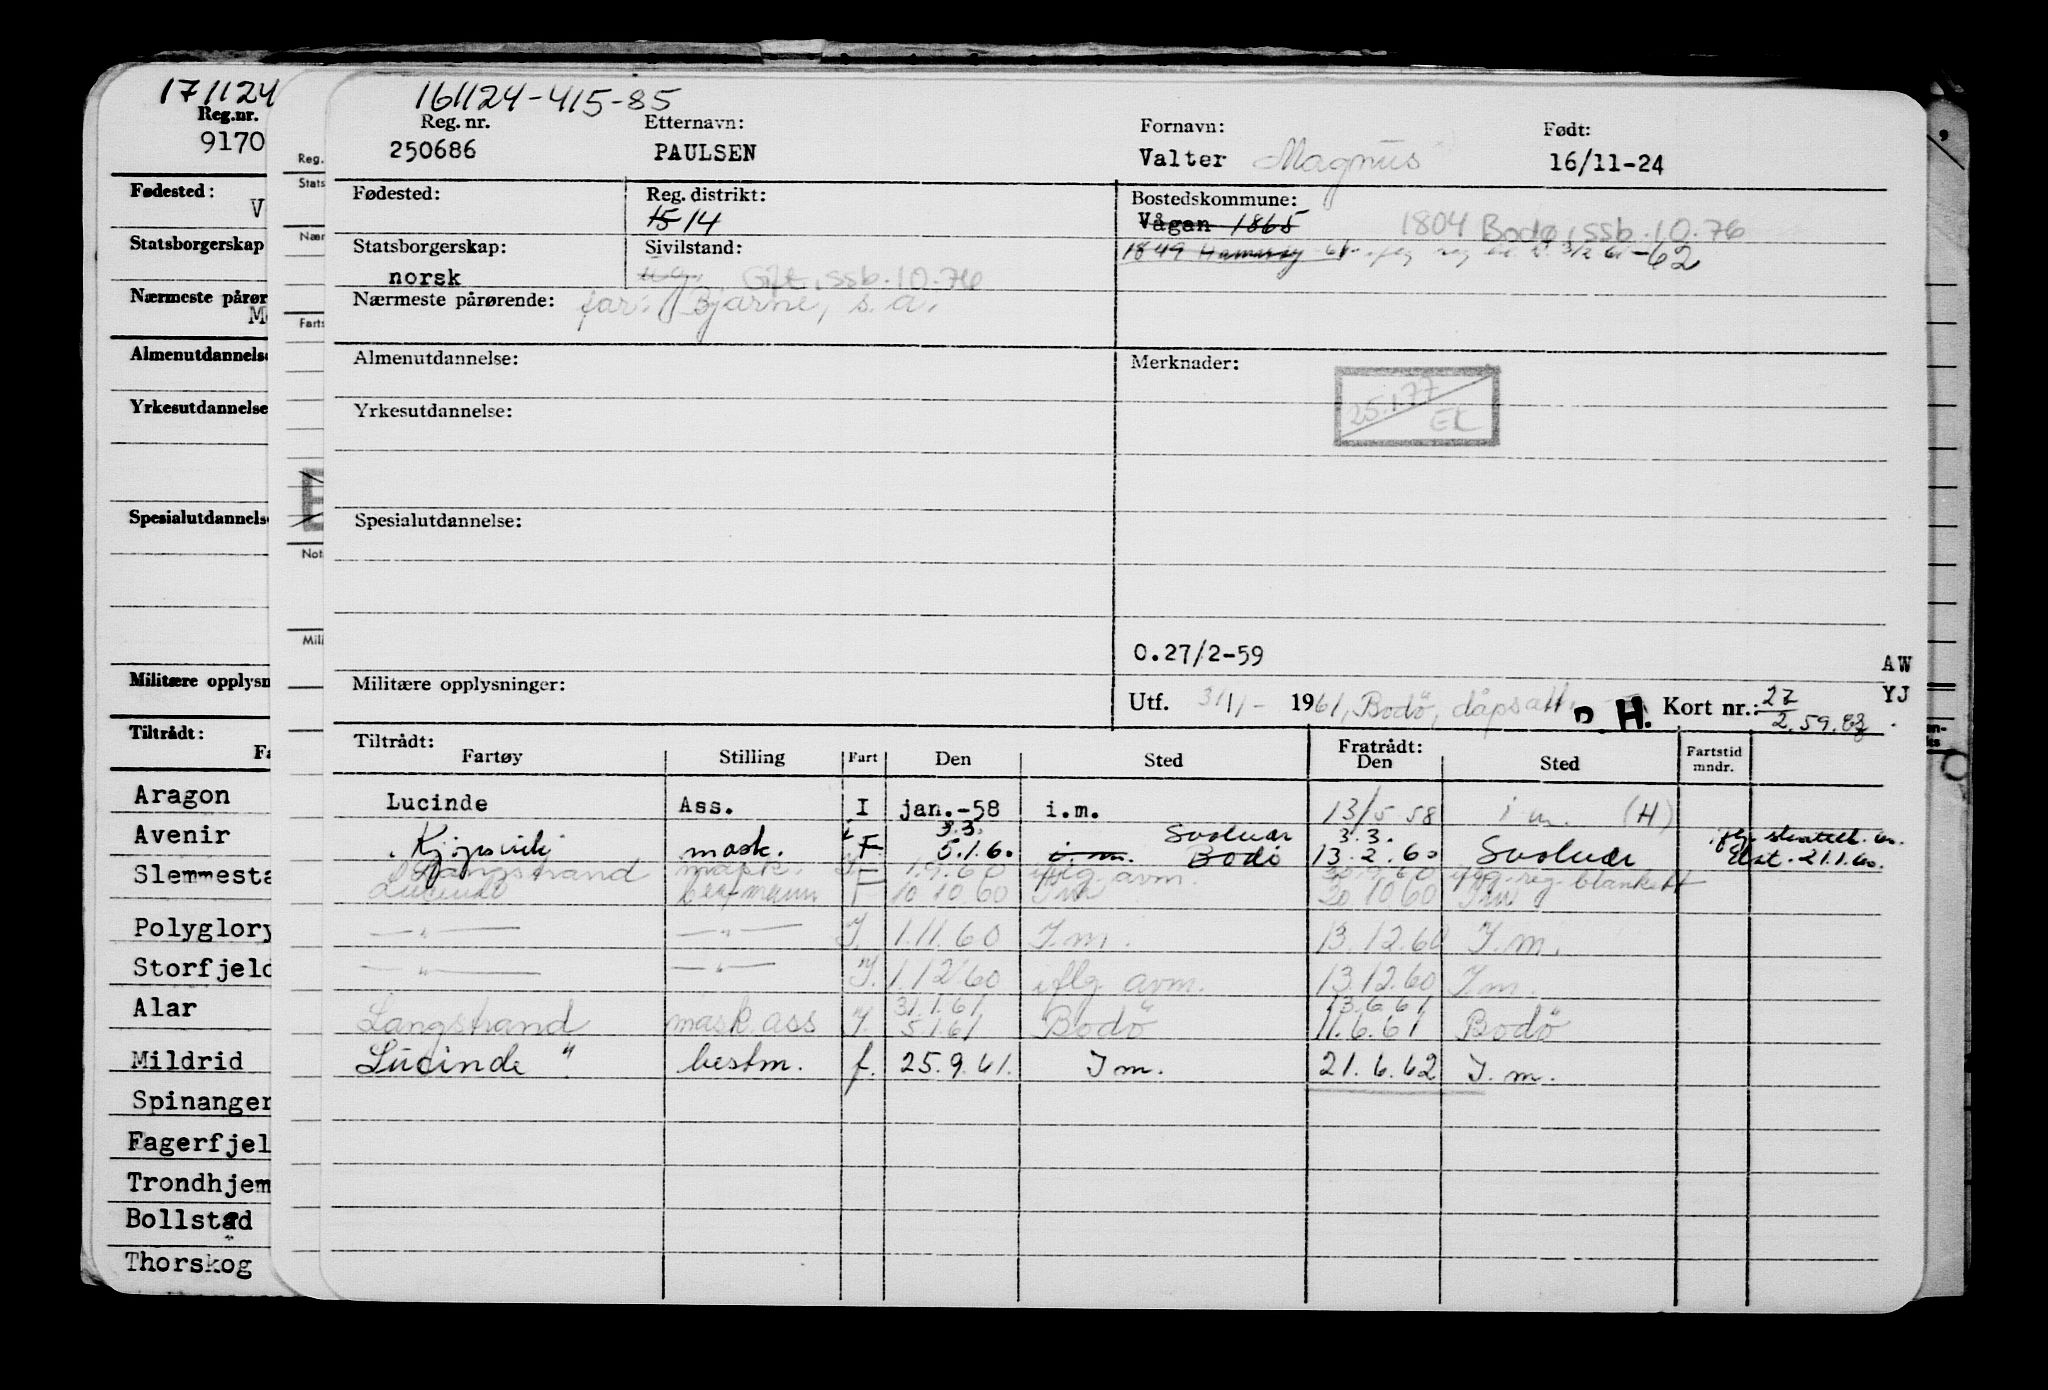 171124
Reg.nr.
9170
Fødested:
V
Statsborgerskap
Nærmeste pårør
Almenutdannelse
Yrkesutdannelse
Spesialutdannelse
Militære opplysn
Tiltrådt:
Aragon
Avenir
Slemmesta
Polyglory
Storfjeld
Alar
Mildrid
Spinanger
Fagerfjel
Trondhjem
Bollstad
Thorskog
Reg.
Stats
Nær
Farts
Not
Mili
161124-415-85
Reg. nr. Etternavn: Fornavn: Født:
250686 PAULSEN Valter Magnus 16/11-24
Fødested: Reg. distrikt: Bostedskommune:
15 14 Vågan 1865 1804 Bodø, ssb. 10.76
Statsborgerskap: Sivilstand: 1849 Hamarøy -62
norsk ug. Gift, ssb. 10.76
Nærmeste pårørende: far: Bjarne, s.a.
Almenutdannelse: Merknader:
25.1.77 EK
Yrkesutdannelse:
Spesialutdannelse:
0.27/2-59
AW
Militære opplysninger: Utf. 31/1- 1961, Bodö, dåpsatt. H. Kort nr.: 27 YJ
2.59.
Tiltrådt: Fratrådt:
Fartøy Stilling Fart Den Sted Den Sted Fartstid mndr.
Lucinde Ass. I jan.-58 i.m. 13/5 58 i m. (H)
3.3. Svolvær 3.3.
mask. F 5.1.60 i.m. Bodö 13.2.60 Svolvær 21.1.60.
Langstrand 1.9.60 iflg. avm. iflg. reg. blankett
Lucinde bestmann F 10 10 60 Im 20 10 60 Im
—"— —"— I. 1.11.60 I.m. 13.12.60 I.m.
—"— —"— I. 1.12.60 iflg. avm. 13.12.60 I.m.
31.1.61 13.6.61
Langstrand mask.ass I. 5.1.61 Bodö 11.6.61 Bodö
Lucinde " bestm. f. 25.9.61. I m. 21.6.62 I.m.